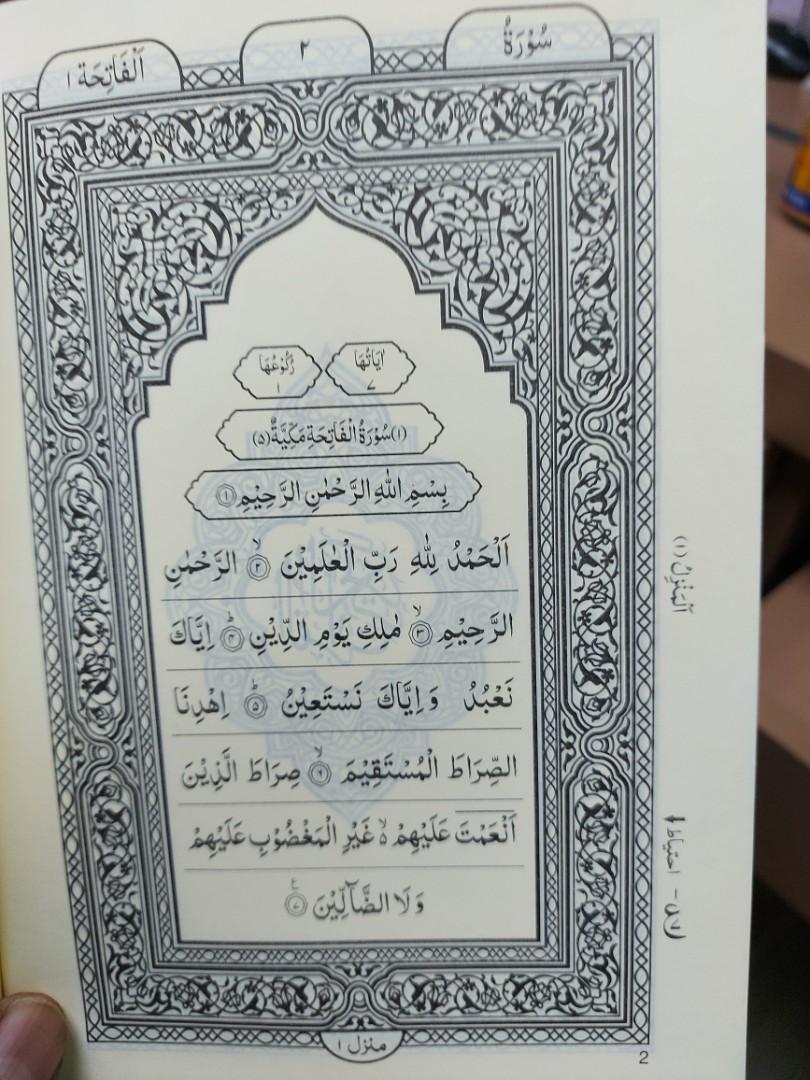 سُوْرَةُ
٢
اَلْفَاتِحَة ١
اٰيَاتُهَا
٧
رُكُوْعُهَا
١
(١) سُوْرَةُ الْفَاتِحَةِ مَكِّيَّةٌ (٥)
بِسْمِ اللّٰهِ الرَّحْمٰنِ الرَّحِيْمِ ١
اَلْحَمْدُ لِلّٰهِ رَبِّ الْعٰلَمِيْنَ ۙ ٢ الرَّحْمٰنِ
الرَّحِيْمِ ۙ ٣ مٰلِكِ يَوْمِ الدِّيْنِ ؕ ٤ اِيَّاكَ
نَعْبُدُ وَاِيَّاكَ نَسْتَعِيْنُ ؕ ٥ اِهْدِنَا
الصِّرَاطَ الْمُسْتَقِيْمَ ۙ ٦ صِرَاطَ الَّذِيْنَ
اَنْعَمْتَ عَلَيْهِمْ ۙ۬ غَيْرِ الْمَغْضُوْبِ عَلَيْهِمْ
وَلَا الضَّآلِّيْنَ ٧ ع
اَلْمَنْزِلُ (١)
احتياط
منزل ١
2